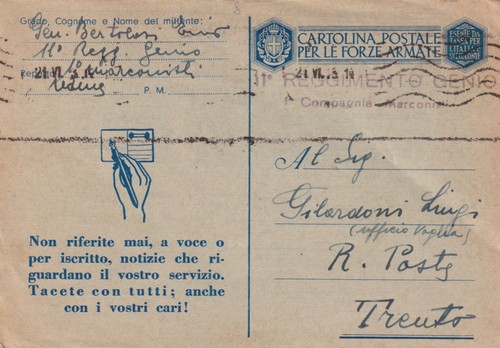 Grado, Cognome e Nome del mittente:
Bertolasi Enio
11° Regg. Genio
Reparto
Marconisti
Udine
P. M.
21.VI.
Non riferite mai, a voce o
per iscritto, notizie che ri-
guardano il vostro servizio.
Tacete con tutti; anche
con i vostri cari!
CARTOLINA POSTALE
PER LE FORZE ARMATE
ESENTE DA
TASSA PER
L'ITALIA
21.VI.
11° REGGIMENTO GENIO
Compagnia Marconisti
Al Sig.
Gilardoni Luigi
(ufficio Vaglia)
R. Poste
Trento